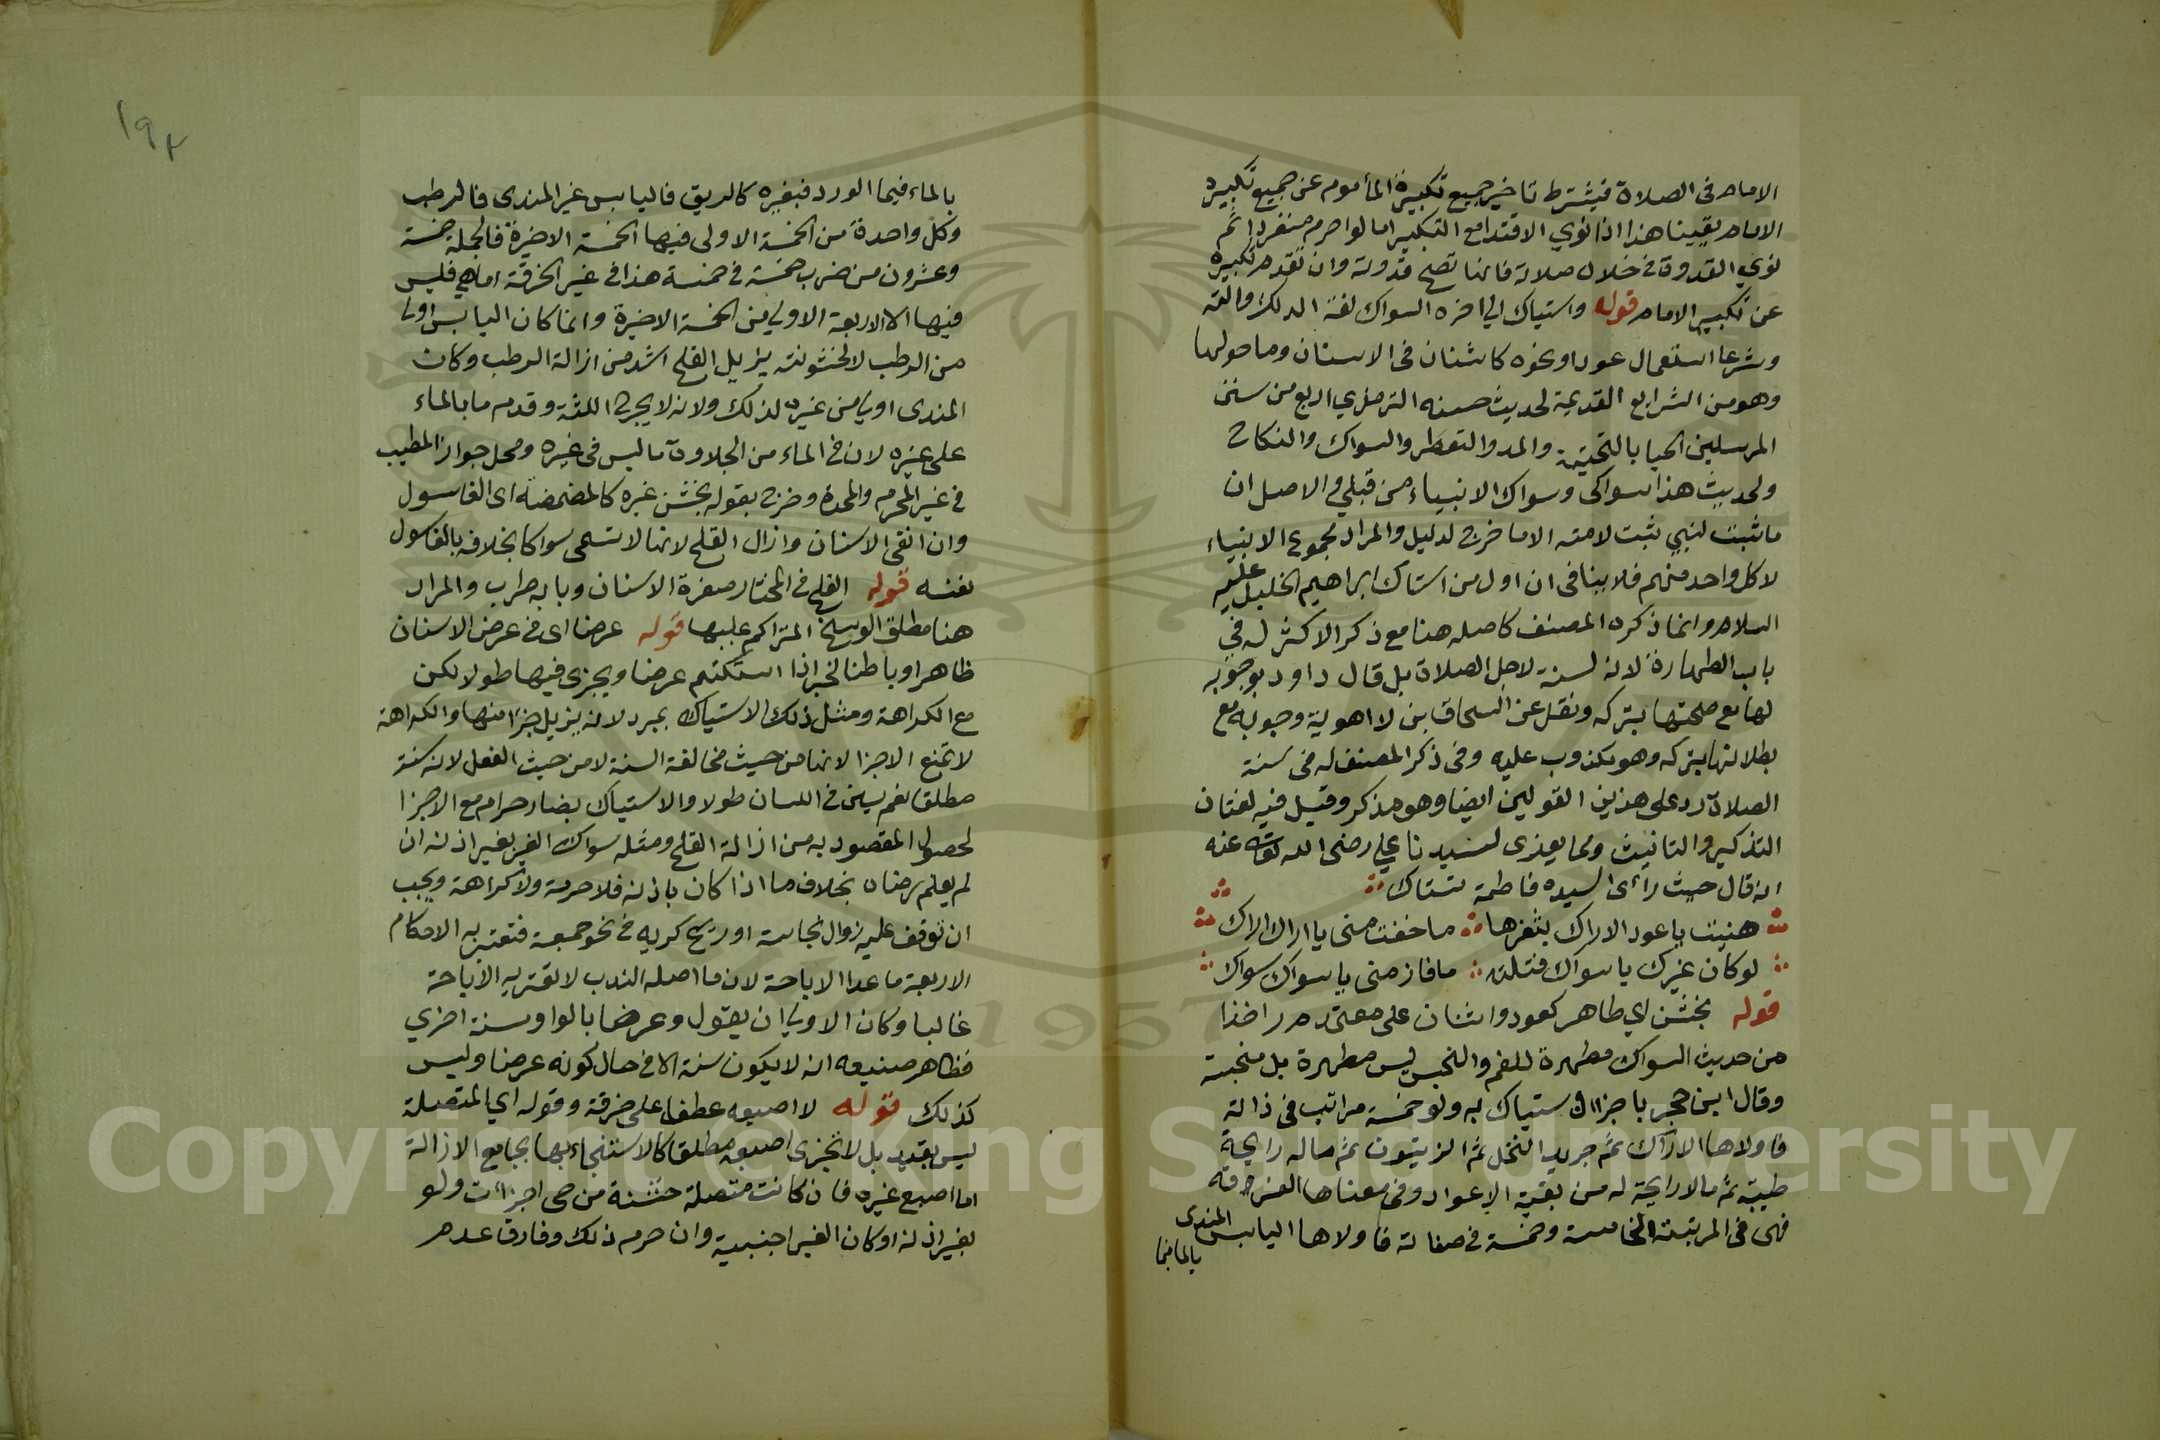 الامام فى الصلاة فيشترط تاخير جميع تكبيرة المأموم عن جميع تكبيرة
الامام يقينا هذا اذا نوي الاقتدا مع التكبير اما لو احرم منفردا ثم
نوي القدوة فى خلال صلاته فانها تصح قدوته وان تقدم تكبيره
عن تكبير الامام قوله واستياك الي اخره السواك لغة الدلك والته
وشرعا استعمال عود او نحوه كاشنان فى الاسنان وما حولها
وهو من الشرايع القديمة لحديث حسنه الترمذي اربع من سنن
المرسلين الحيا بالتحتية والمد والتعطر والسواك والنكاح
ولحديث هذا سواكى وسواك الانبياء من قبلي والاصل ان
ما ثبت لنبي ثبت لامته الا ما خرج لدليل والمراد مجموع الانبياء
لا كل واحد منهم فلا ينافى ان اول من استاك ابراهيم الخليل عليه
السلام وانما ذكره المصنف كاصله هنا مع ذكر الاكثر له في
باب الطهارة لانه لسنة لاجل الصلاة بل قال داود بوجوبه
لها مع صحتها بتركه ونقل عن اسحاق بن لاهوية وجوبه مع
بطلانها بتركه وهو مكذوب عليه وفى ذكر المصنف له فى سنة
الصلاة رد على هذين القولين ايضا وهو مذكر وقيل فيه لغتان
التذكير والتانيث ومما يعزى لسيدنا علي رضى الله تعالى عنه
انه قال حيث رائ السيده فاطمة تستاك
هنيت يا عود الاراك بثغرها ما خفت منى يا اراك اراك
لو كان غيرك يا سواك قتلته ما فاز منى يا سواك سواك
قوله بخشن اي طاهر كعود واشنان على معتمد م ر اخذا
من حديث السواك مطهرة للفم والنجس ليس مطهرة بل منجسة
وقال ابن حجر باجزاا الاستياك به ولو خمسة مراتب فى ذاته
فاولاها الاراك ثم جريد النخل ثم الزيتون ثم ما له رايحة
طيبة ثم ما لا رايحة له من بقية الاعواد وفى معناها الخرقة
فهى فى المرتبة الخامسة وخمسة فى صفاته فاولاها اليابس المندى
بالما فيما
١٩٢
بالماء فيما الورد فبغيره كالريق فاليابس غير المندى فالرطب
وكل واحدة من الخمسة الاولى فيها الخمسة الاخيرة فالجملة خمسة
وعشرون من ضرب خمسة فى خمسة هذا فى غير الخرقة اما هي فليس
فيها الا الاربعة الاولي من الخمسة الاخيرة وانما كان اليابس اولى
من الرطب لان خشونته يزيل القلح اشد من ازالة الرطب وكان
المندى اولي من غيره لذلك ولانه لا يجرح اللثة وقدم ما بالماء
على غيره لان فى الماء من الجلاوة ما ليس فى غيره ومحل جواز المطيب
فى غير المحرم والمحدة وخرج بقوله بخشن غيره كالمضمضة اى الغاسول
وان انقى الاسنان وازال القلح لانها لا تسمى سواكا بخلافه بالغاسول
نفسه قوله القلح فى المختار صفرة الاسنان وبابه طرب والمراد
هنا مطلق الوسخ المتراكم عليها قوله عرضا اى فى عرض الاسنان
ظاهرا وباطنا لخبر اذا استكتم عرضا ويجزى فيها طولا لكن
مع الكراهة ومثل ذلك الاستياك بمبرد لانه يزيل جزا منها والكراهة
لا تمنع الاجزا لانها من حيث مخالفة السنة لا من حيث الفعل لانه سنة
مطلقا نعم يسن فى اللسان طولا والاستياك بضار حرام مع الاجزا
لحصول المقصود به من ازالة القلح ومثله سواك الغير بغير اذنه ان
لم يعلم رضاه بخلاف ما اذا كان باذنه فلا حرمة ولا كراهة ويجب
ان توقف عليه زوال نجاسة او ريح كريه فى نحو جمعة فتعتريه الاحكام
الاربعة ما عدا الاباحة لان ما اصله الندب لا تعتريه الاباحة
غالبا وكان الاولي ان يقول وعرضا بالواو سنة اخري
فظاهر صنيعه انه لا يكون سنة الا فى حال كونه عرضا وليس
كذلك قوله لا اصبعه عطفا على خرقة وقوله اي المتصلة
ليس بقيد بل لا تجزى اصبعه مطلقا كالاستنجاء بها بجامع الازالة
اما اصبع غيره فان كانت متصلة خشنة من حى اجزات ولو
بغير اذنه او كان الغير اجنبية وان حرم ذلك وفارق عدم
Copyright © King Saud University
1957